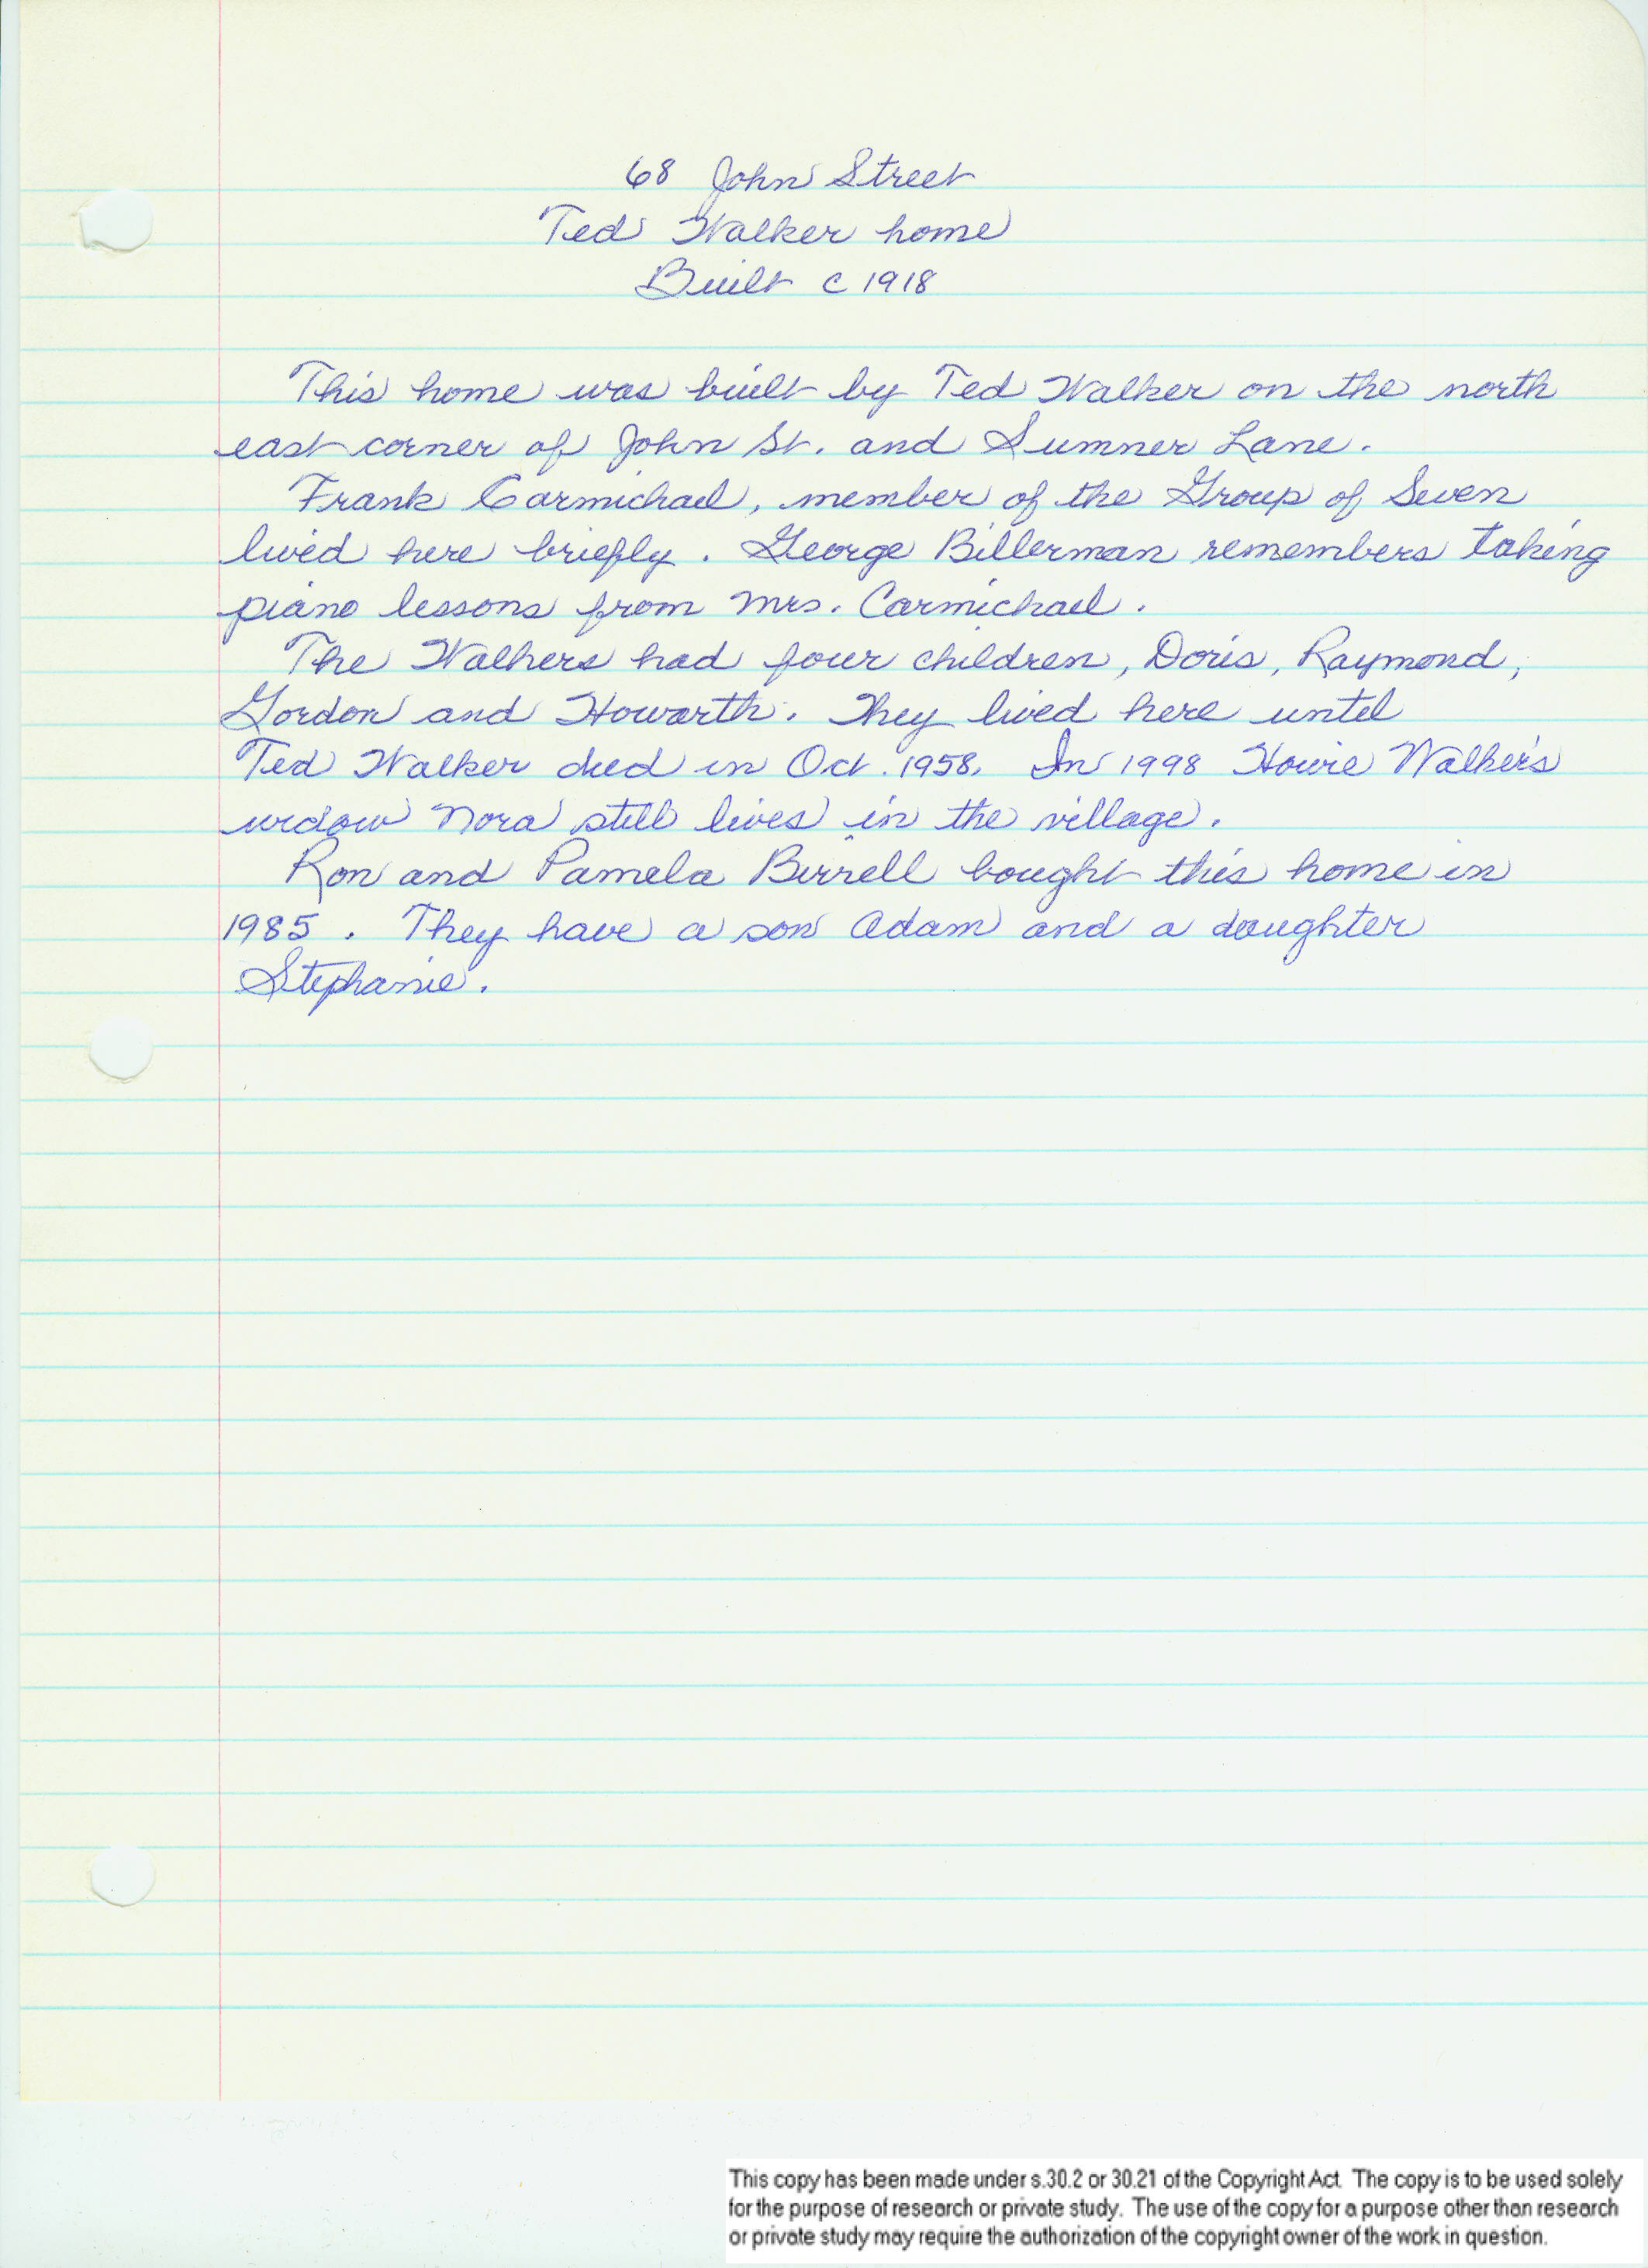 68 John Street
Ted Walker home
Built c 1918
This home was built by Ted Walker on the north
east corner of John St. and Sumner Lane.
Frank Carmichael, member of the Group of Seven
lived here briefly. George Billerman remembers taking
piano lessons from Mrs. Carmichael.
The Walkers had four children, Doris, Raymond,
Gordon and Howarth. They lived here until
Ted Walker died in Oct. 1958. In 1998 Howie Walker's
widow Nora still lives in the village.
Ron and Pamela Birrell bought this home in
1985. They have a son Adam and a daughter
Stephanie.
This copy has been made under s.30.2 or 30.21 of the Copyright Act. The copy is to be used solely
for the purpose of research or private study. The use of the copy for a purpose other than research
or private study may require the authorization of the copyright owner of the work in question.